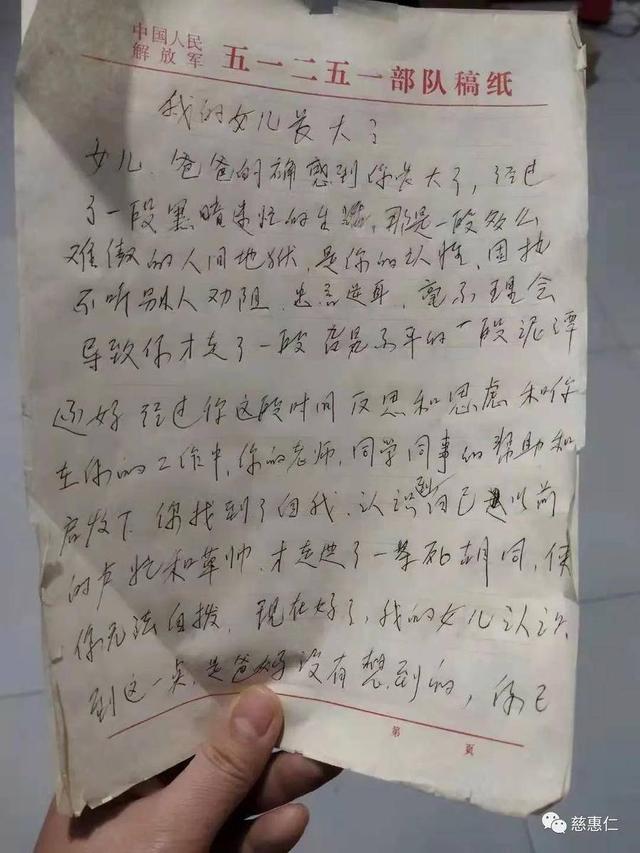 中国人民
解放军 五一二五一部队稿纸
我的女儿长大了
女儿、爸爸的确感到你长大了，经过
了一段黑暗渺忙的生活，那是一段多么
难傲的人间地狱，是你的认性、固执
不听别人劝阻、忠言逆耳，毫不理会
导致你才走了一段 不平的一段泥潭
还好 经过你这段时间 反思和思虑 和你
在你的工作中，你的老师，同学同事的帮助和
启校下 你找到了自我、认识到自己是以前
的卢忙和草帅、才走进了一条死胡同，使
你无法自拨，现在好了，我的女儿认识
到这一点，是爸妈没有想到的，你已
第 页
慈惠仁